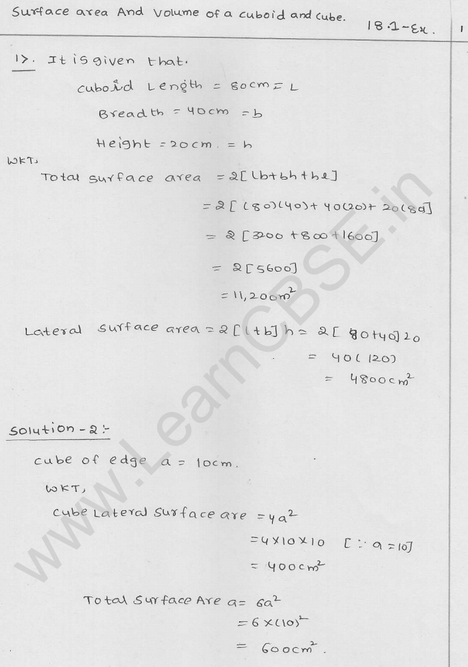 Surface area And Volume of a cuboid and cube. 18.1-Ex. 1
1>. It is given that.
cuboid Length = 80cm = L
Breadth = 40cm = b
Height = 20cm = h
WKT,
Total surface area = 2[lb+bh+hl]
= 2[(80)(40)+40(20)+20(80]
= 2[3200+800+1600]
= 2[5600]
= 11,200cm²
Lateral surface area = 2[l+b]h = 2[80+40]20
= 40(120)
= 4800cm²
Solution-2:-
cube of edge a = 10cm.
WKT,
cube Lateral Surface are = 4a²
= 4×10×10 [∵ a=10]
= 400cm²
Total Surface Are a = 6a²
= 6×(10)²
= 600cm².
www.LearnCBSE.in